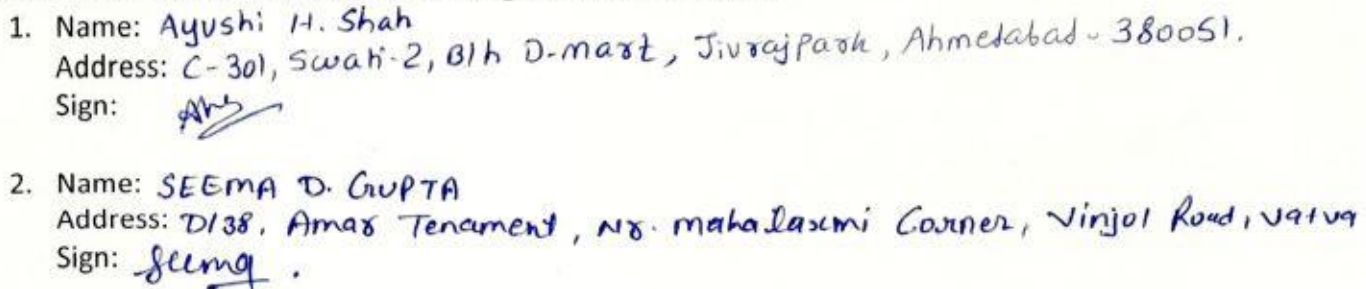 1. Name: Ayushi H. Shah
Address: C-301, Swati-2, B/h D-mart, Jivrajpark, Ahmedabad - 380051.
Sign:
2. Name: SEEMA D. GUPTA
Address: D/38, Amar Tenament, Nr. mahalaxmi Corner, Vinjol Road, vatva
Sign: Seema .